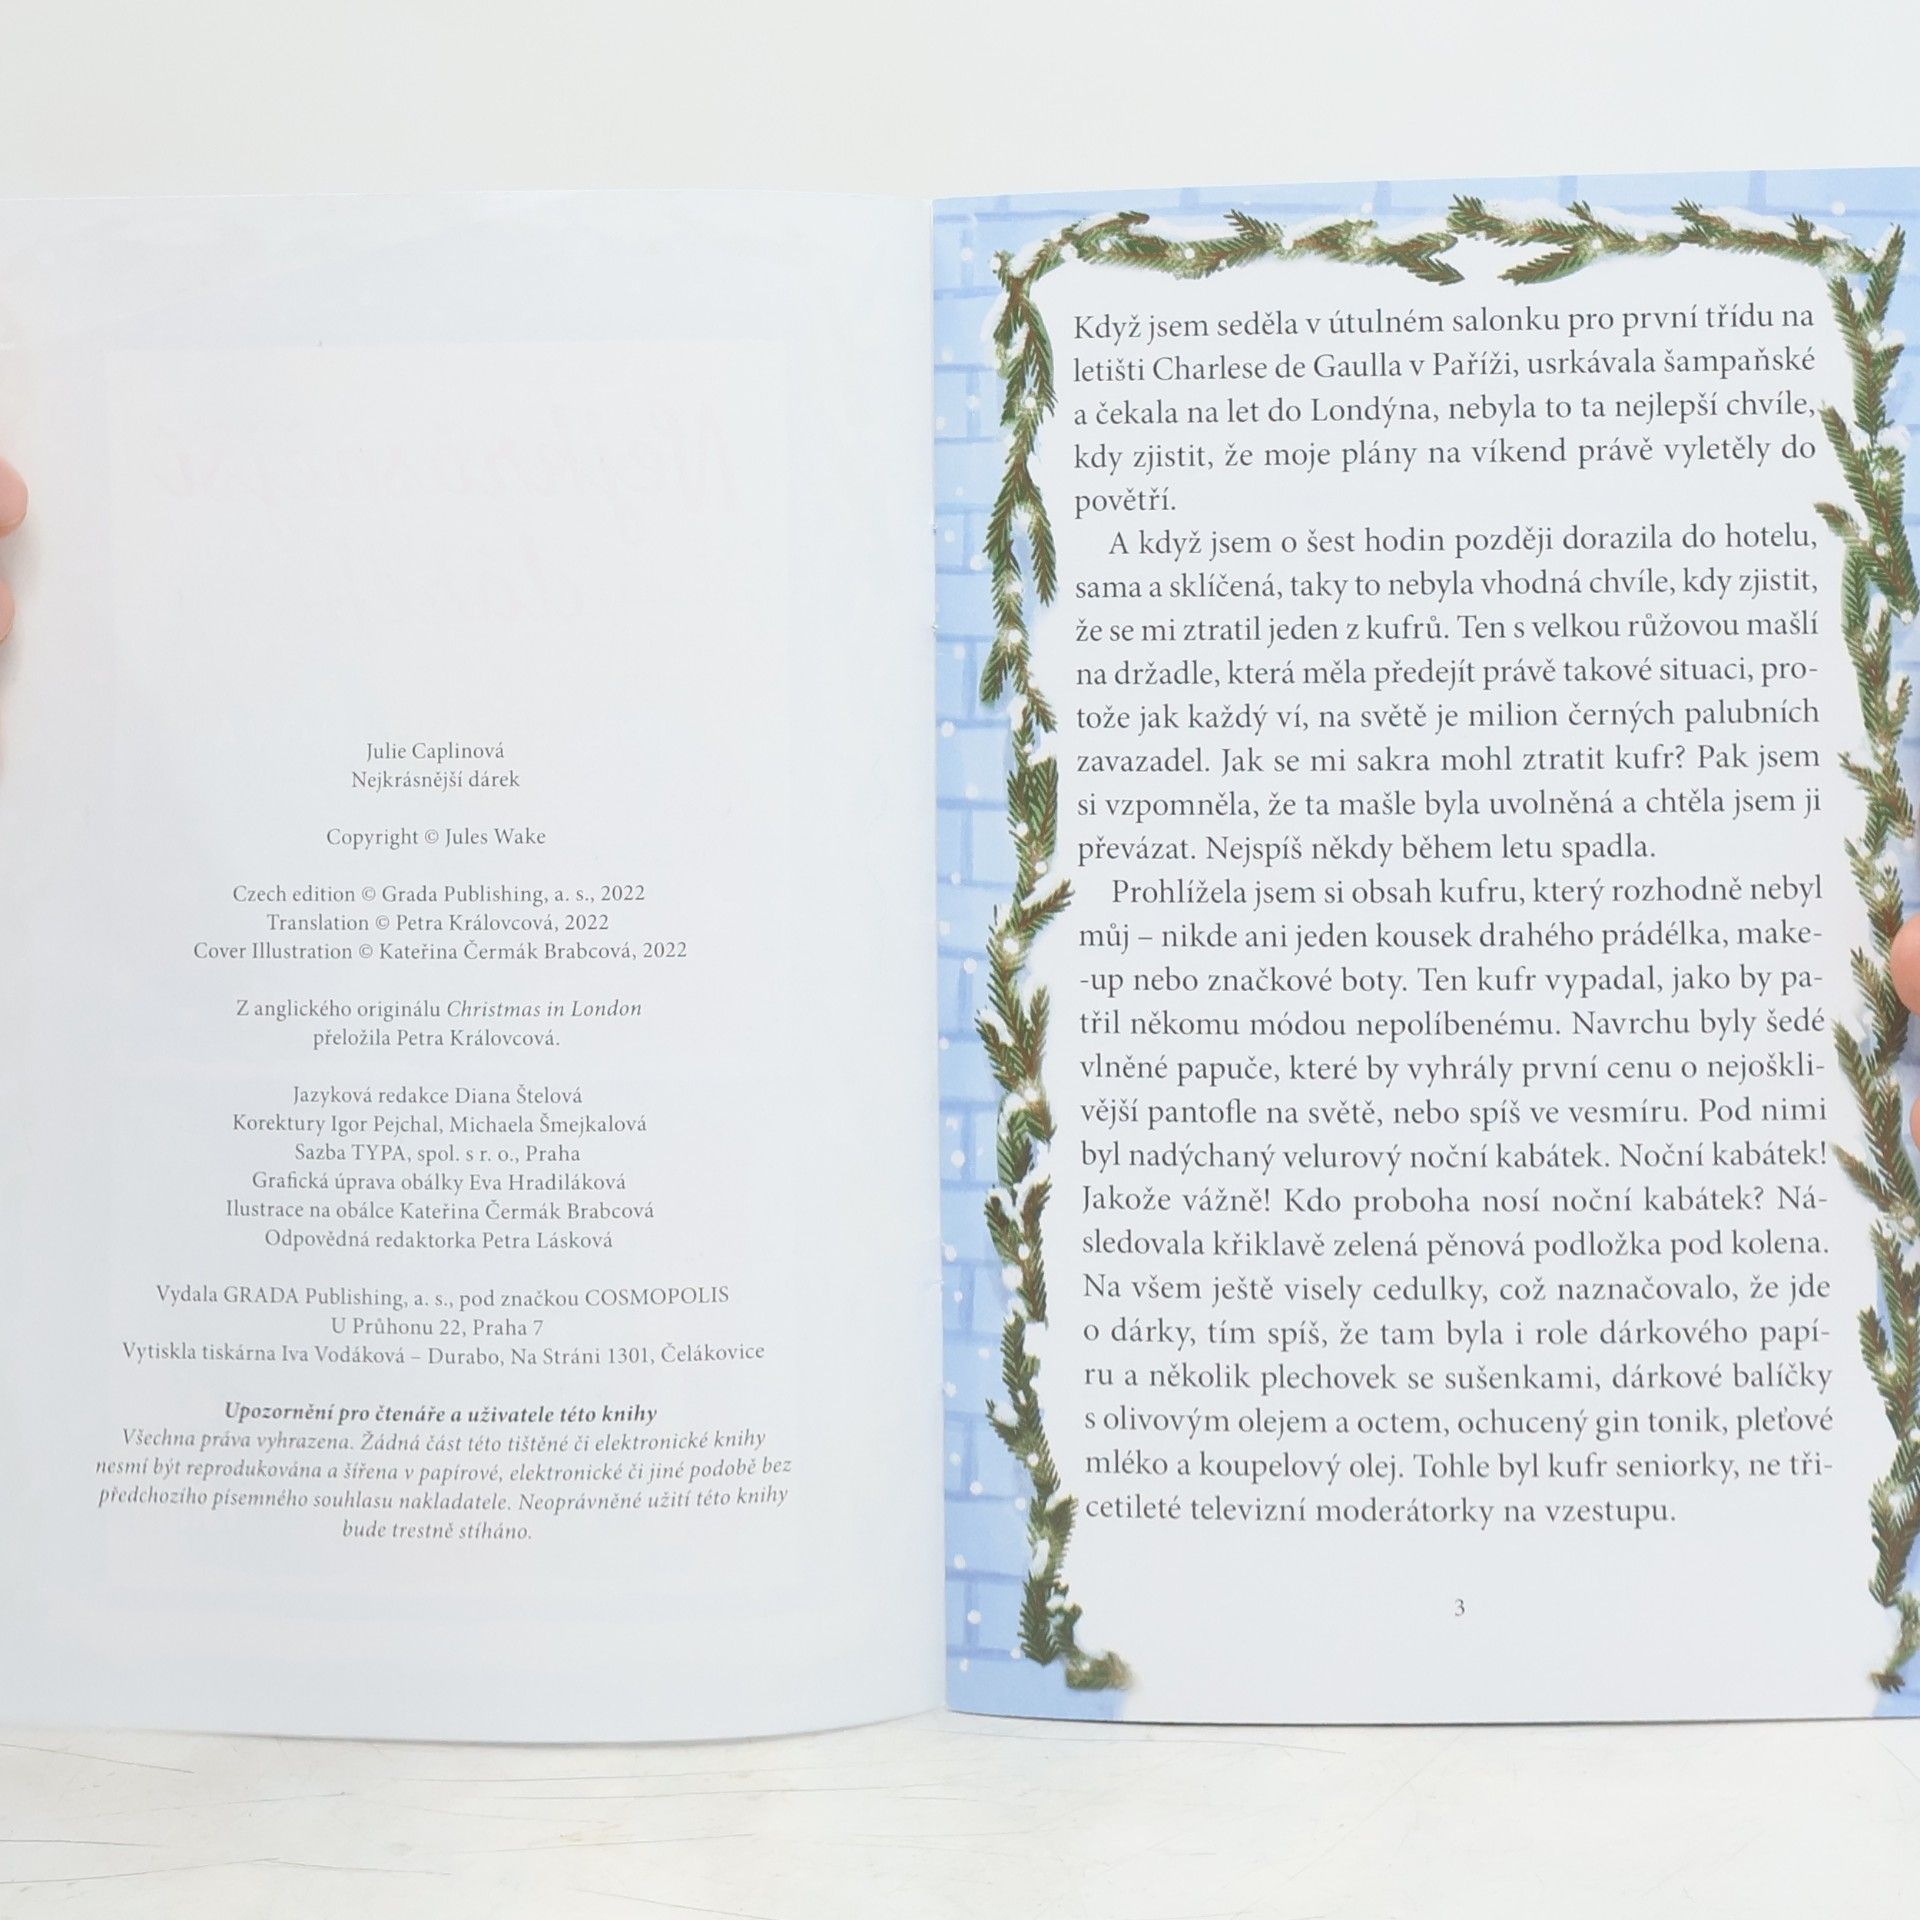 Julie Caplinová
Nejkrásnější dárek
Copyright © Jules Wake
Czech edition © Grada Publishing, a. s., 2022
Translation © Petra Královcová, 2022
Cover Illustration © Kateřina Čermák Brabcová, 2022
Z anglického originálu Christmas in London
přeložila Petra Královcová.
Jazyková redakce Diana Štelová
Korektury Igor Pejchal, Michaela Šmejkalová
Sazba TYPA, spol. s r. o., Praha
Grafická úprava obálky Eva Hradiláková
Ilustrace na obálce Kateřina Čermák Brabcová
Odpovědná redaktorka Petra Lásková
Vydala GRADA Publishing, a. s., pod značkou COSMOPOLIS
U Průhonu 22, Praha 7
Vytiskla tiskárna Iva Vodáková – Durabo, Na Stráni 1301, Čelákovice
Upozornění pro čtenáře a uživatele této knihy
Všechna práva vyhrazena. Žádná část této tištěné či elektronické knihy
nesmí být reprodukována a šířena v papírové, elektronické či jiné podobě bez
předchozího písemného souhlasu nakladatele. Neoprávněné užití této knihy
bude trestně stíháno.
Když jsem seděla v útulném salonku pro první třídu na
letišti Charlese de Gaulla v Paříži, usrkávala šampaňské
a čekala na let do Londýna, nebyla to ta nejlepší chvíle,
kdy zjistit, že moje plány na víkend právě vyletěly do
povětří.
A když jsem o šest hodin později dorazila do hotelu,
sama a sklíčená, taky to nebyla vhodná chvíle, kdy zjistit,
že se mi ztratil jeden z kufrů. Ten s velkou růžovou mašlí
na držadle, která měla předejít právě takové situaci, pro-
tože jak každý ví, na světě je milion černých palubních
zavazadel. Jak se mi sakra mohl ztratit kufr? Pak jsem
si vzpomněla, že ta mašle byla uvolněná a chtěla jsem ji
převázat. Nejspíš někdy během letu spadla.
Prohlížela jsem si obsah kufru, který rozhodně nebyl
můj – nikde ani jeden kousek drahého prádélka, make-
-up nebo značkové boty. Ten kufr vypadal, jako by pa-
třil někomu módou nepolíbenému. Navrchu byly šedé
vlněné papuče, které by vyhrály první cenu o nejoškli-
vější pantofle na světě, nebo spíš ve vesmíru. Pod nimi
byl nadýchaný velurový noční kabátek. Noční kabátek!
Jakože vážně! Kdo proboha nosí noční kabátek? Ná-
sledovala křiklavě zelená pěnová podložka pod kolena.
Na všem ještě visely cedulky, což naznačovalo, že jde
o dárky, tím spíš, že tam byla i role dárkového papí-
ru a několik plechovek se sušenkami, dárkové balíčky
s olivovým olejem a octem, ochucený gin tonik, pleťové
mléko a koupelový olej. Tohle byl kufr seniorky, ne tři-
cetileté televizní moderátorky na vzestupu.
3